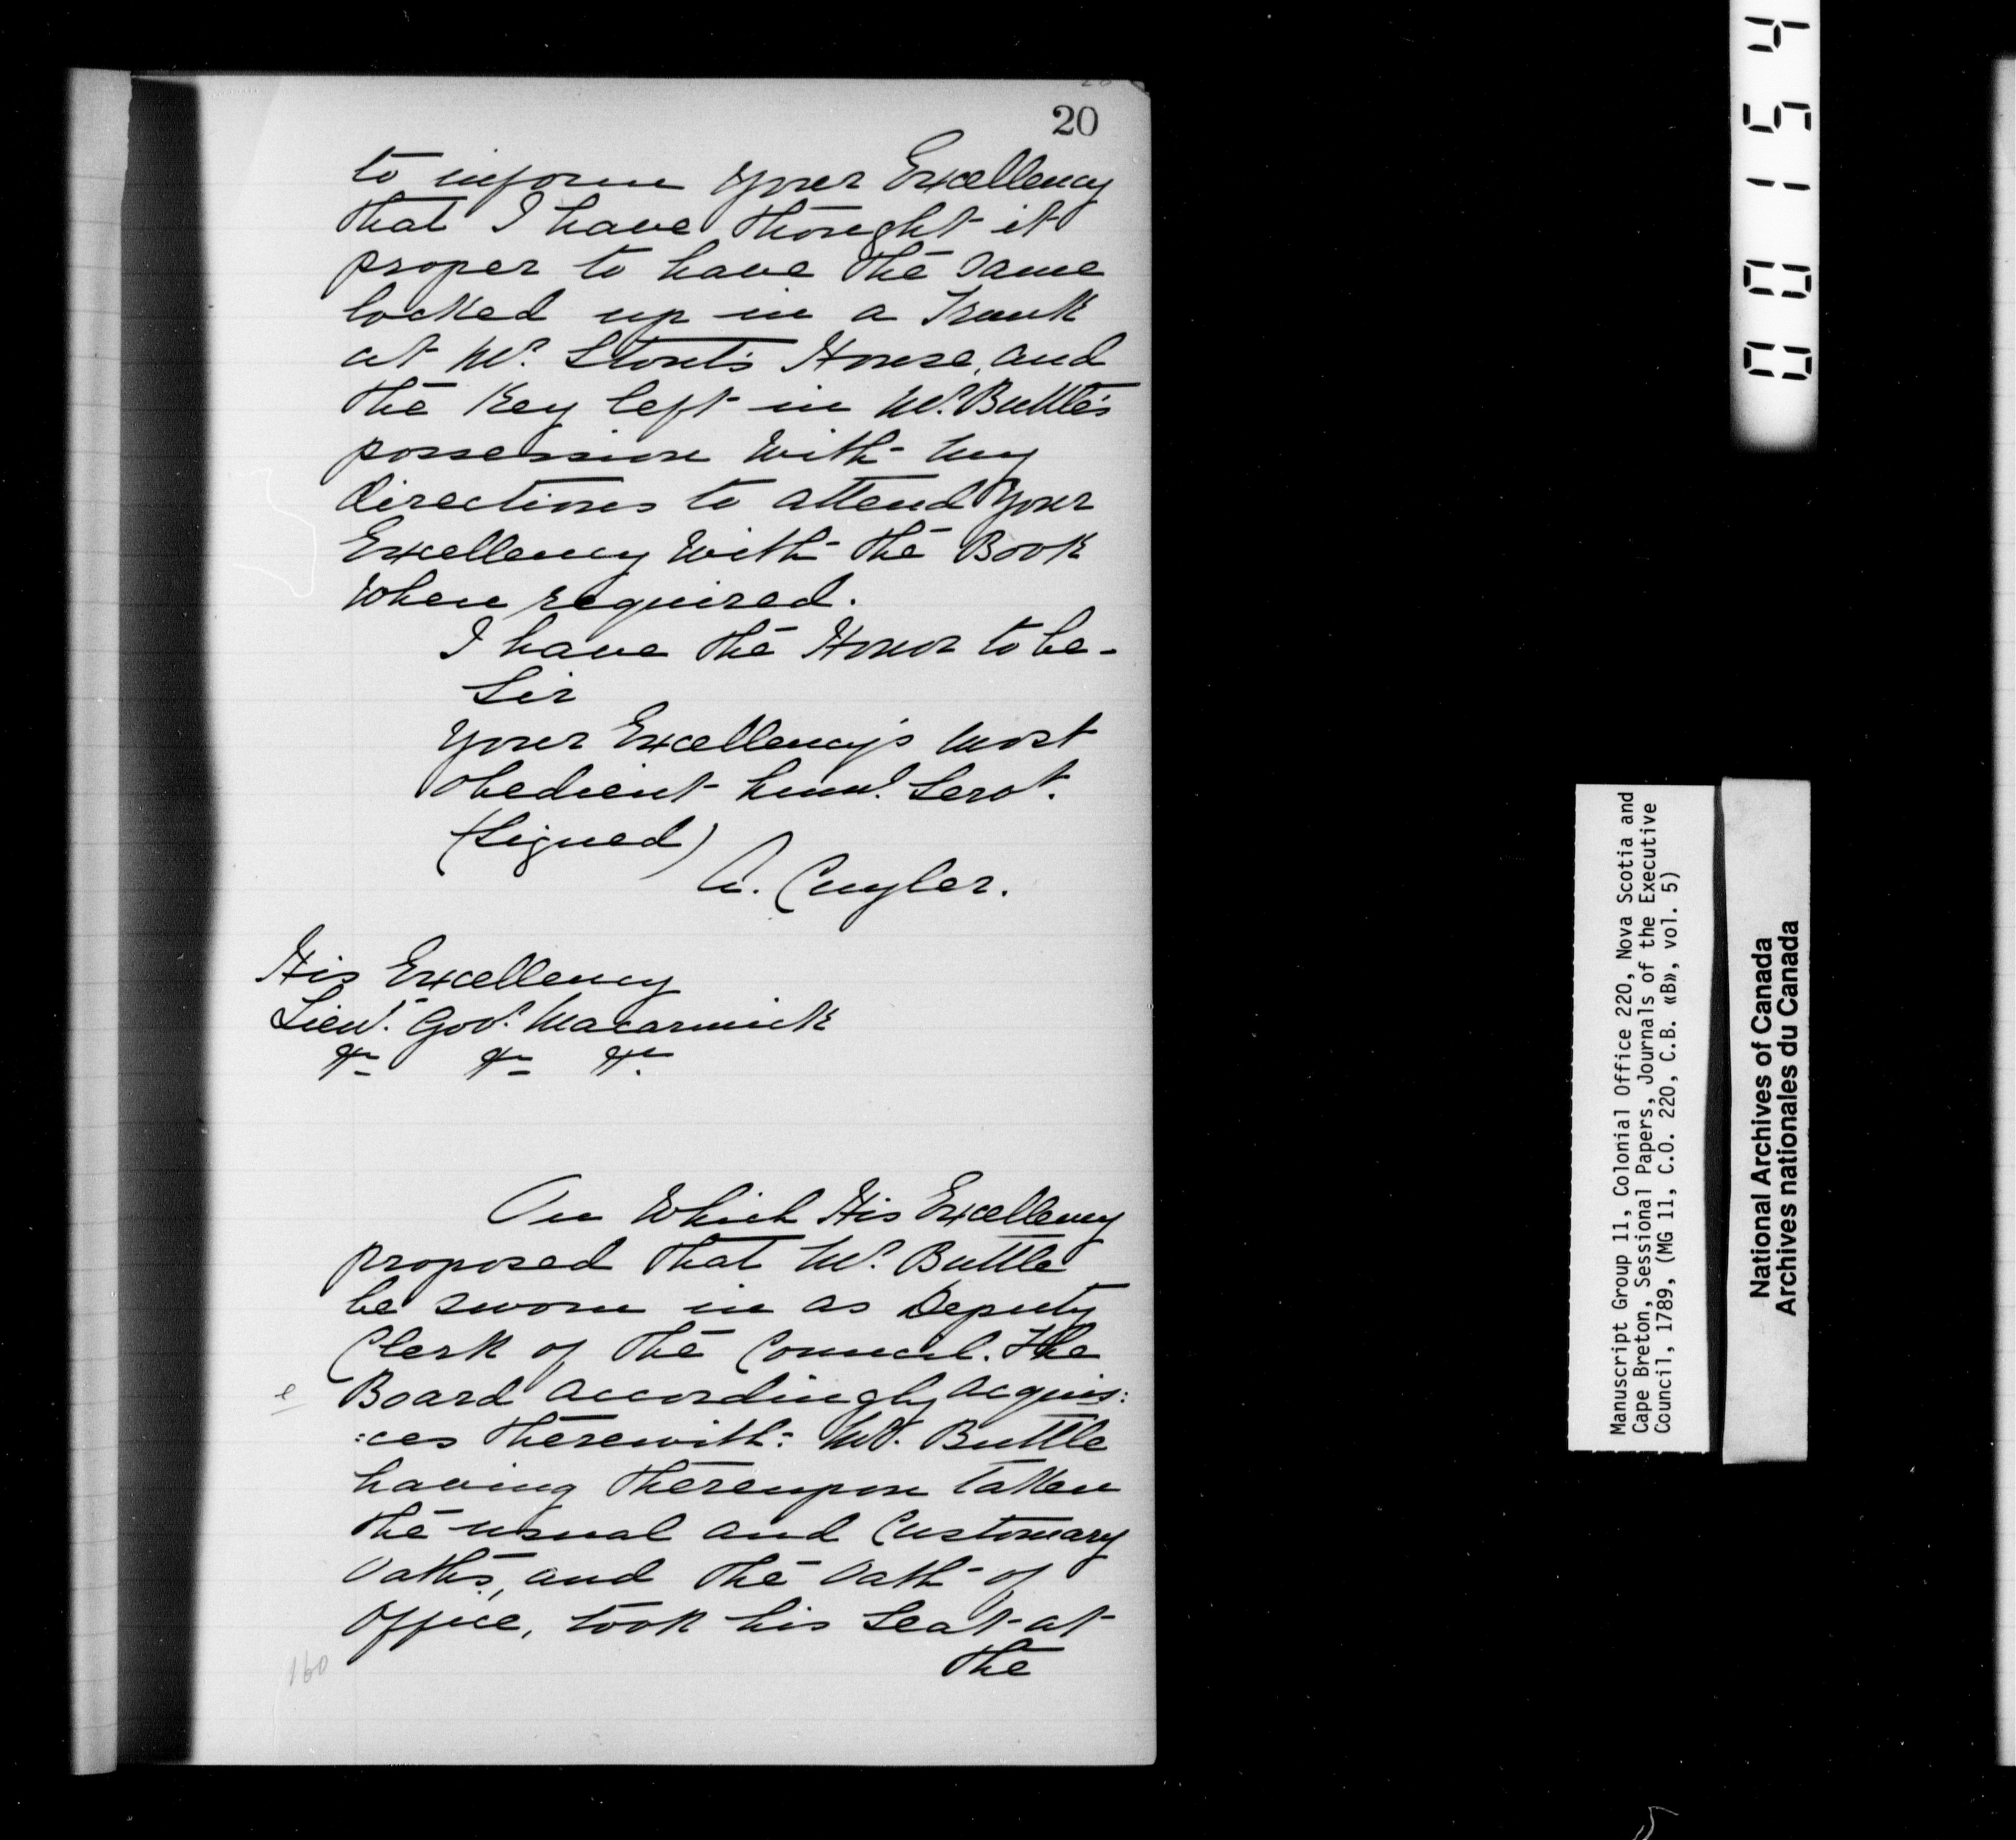 20
to inform your Excellency
that I have thought it
proper to have the same
locked up in a Trunk
at Mr. Stout's House, and
the Key left in Mr. Buttle's
possession with my
directions to attend your
Excellency with the Book
when required.
I have the Honor to be-
Sir
your Excellency's most
obedient huml. Servt.
(Signed)
A. Cuyler.
His Excellency
Lieut. Govr. Macarmick
&c &c &c
On which His Excellency
proposed that Mr. Buttle
be sworn in as Deputy
Clerk of the Council. The
e Board accordingly acquis:
:ces therewith: Mr. Buttle
having thereupon taken
the usual and Customary
Oaths, and the Oath of
Office, took his Seat at
the
160
00154
Manuscript Group 11, Colonial Office 220, Nova Scotia and
Cape Breton, Sessional Papers, Journals of the Executive
Council, 1789, (MG 11, C.O. 220, C.B. «B», vol. 5)
National Archives of Canada
Archives nationales du Canada